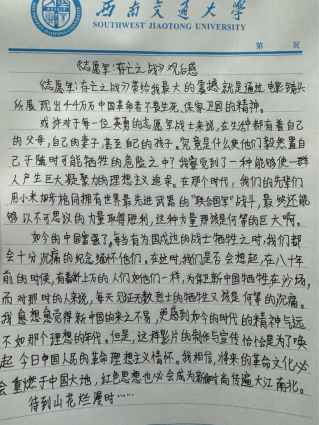 西南交通大学
SOUTHWEST JIAOTONG UNIVERSITY
第 頁
《志愿军：存亡之战》观后感
《志愿军：存亡之战》带给我最大的震撼就是通过电影镜头
所展现出千千万万中国革命者不畏生死，保家卫国的精神。
或许对于每一位英勇的志愿军战士来说，在生活中都有着自己
的父母，自己的妻子，甚至自己的孩子。究竟是什么使他们毅然置自
己于随时可能牺牲的危险之中？我察觉到了一种能够使一群
人产生巨大凝聚力的理想主义追求。在那个时代，我们的先辈们
用小米加步枪同拥有世界最先进武器的“联合国军”战斗，最终还能
够以不可思议的力量取得胜利，这种力量那该是何等的巨大啊。
如今的中国富强了，每当有为国戍边的战士牺牲之时，我们都
会十分沉痛的纪念缅怀他们。在这时，我们是否会想起，在八十年
前的时候，有着数以万的人们如他们一样，为保卫新中国牺牲在沙场，
而对那时的人来说，每天见证无数烈士的牺牲又该是何等的沉痛。
我愈想愈觉得新中国的来之不易，更感到如今的时代的精神与远
不如那个理想的年代。但是，这种影片的制作与宣传恰恰是为了唤
起今日中国人民的革命理想主义情怀。我相信，将来的革命文化必
会重燃于中国大地，红色思想也必会成为新时尚传遍大江南北。
待到山花烂漫时……